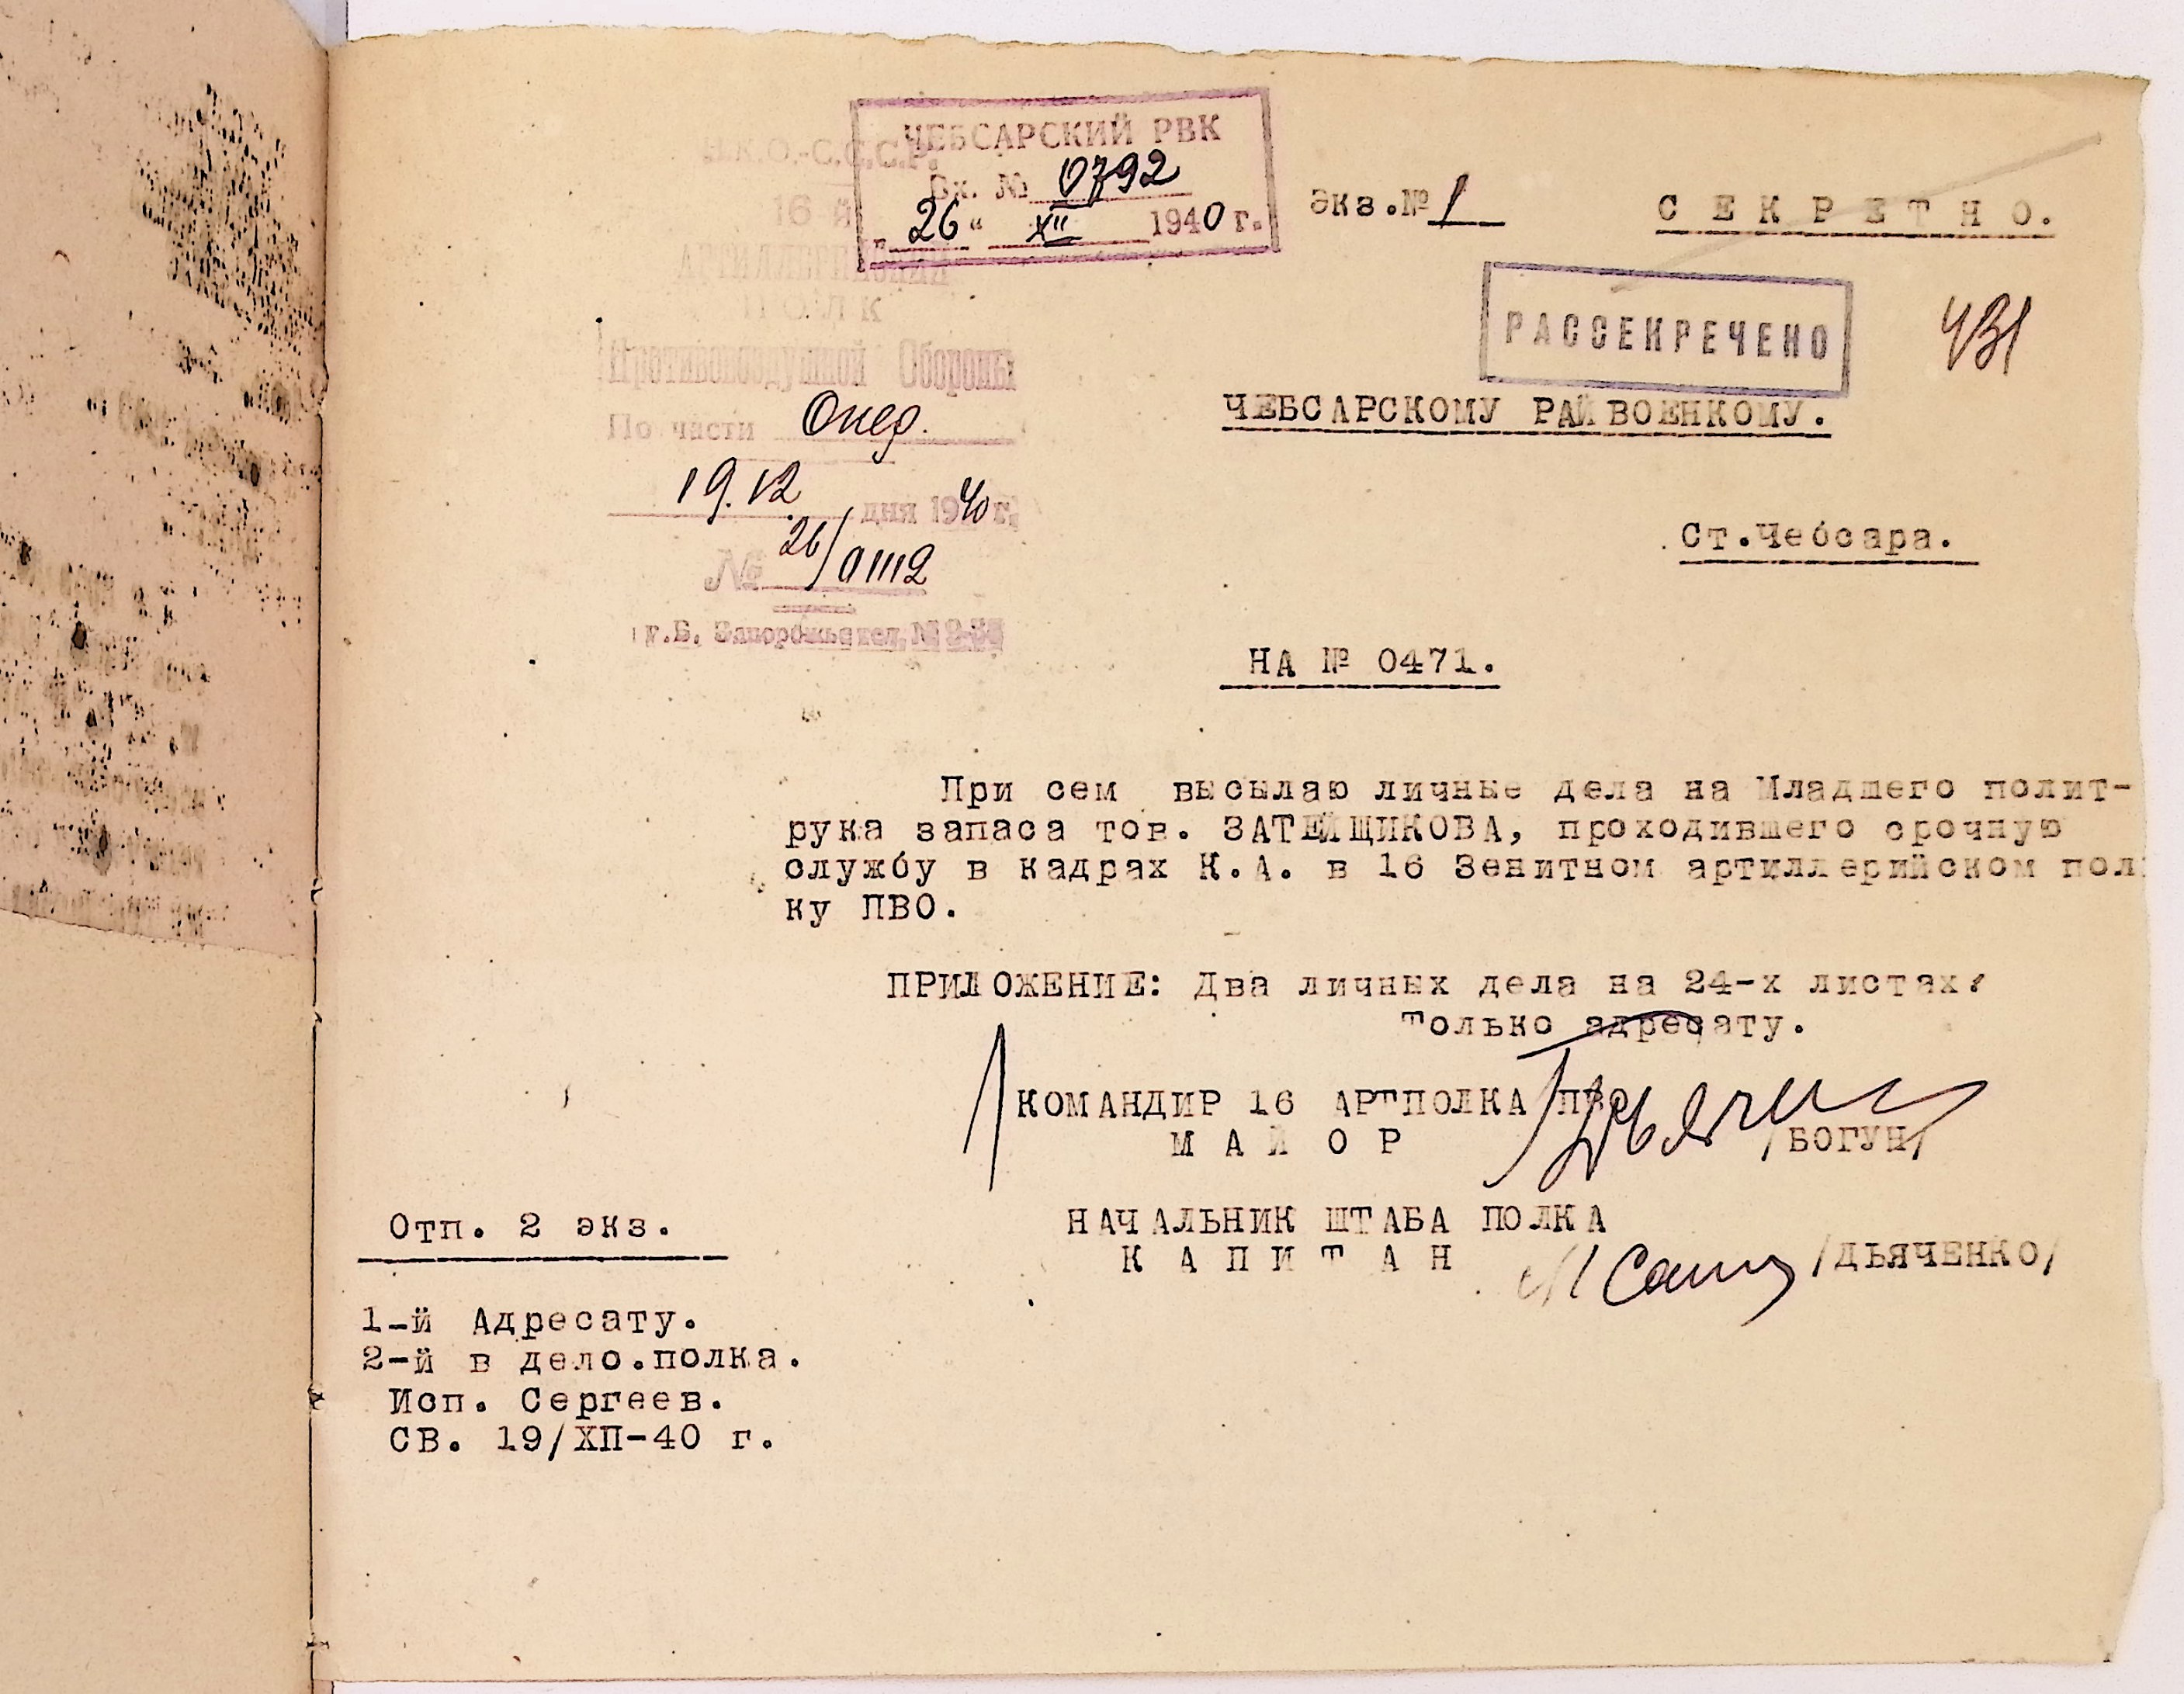 ЧЕБСАРСКИЙ РВК
Вх. № 0792
„26“ XII 1940 г.
Н.К.О.-С.С.С.Р.
16 й
АРТИЛЛЕРИЙСКИЙ
ПОЛК
Противовоздушной Обороны
По части Опер.
19.12 дня 1940 г.
№ 26/01112
г.Б. Запорожье тел. №
Экз.№ 1
СЕКРЕТНО.
РАССЕКРЕЧЕНО
431
ЧЕБСАРСКОМУ РАЙВОЕНКОМУ.
Ст.Чебсара.
НА № 0471.
При сем высылаю личные дела на Младшего полит-
рука запаса тов. ЗАТЕЙЩИКОВА, проходившего срочную
службу в кадрах К.А. в 16 Зенитном артиллерийском пол
ку ПВО.
ПРИЛОЖЕНИЕ: Два личных дела на 24-х листах.
только адресату.
КОМАНДИР 16 АРТПОЛКА ПВО
МАЙОР /БОГУН/
НАЧАЛЬНИК ШТАБА ПОЛКА
КАПИТАН /ДЬЯЧЕНКО/
Отп. 2 экз.
1-й Адресату.
2-й в дело.полка.
Исп. Сергеев.
СВ. 19/ХП-40 г.